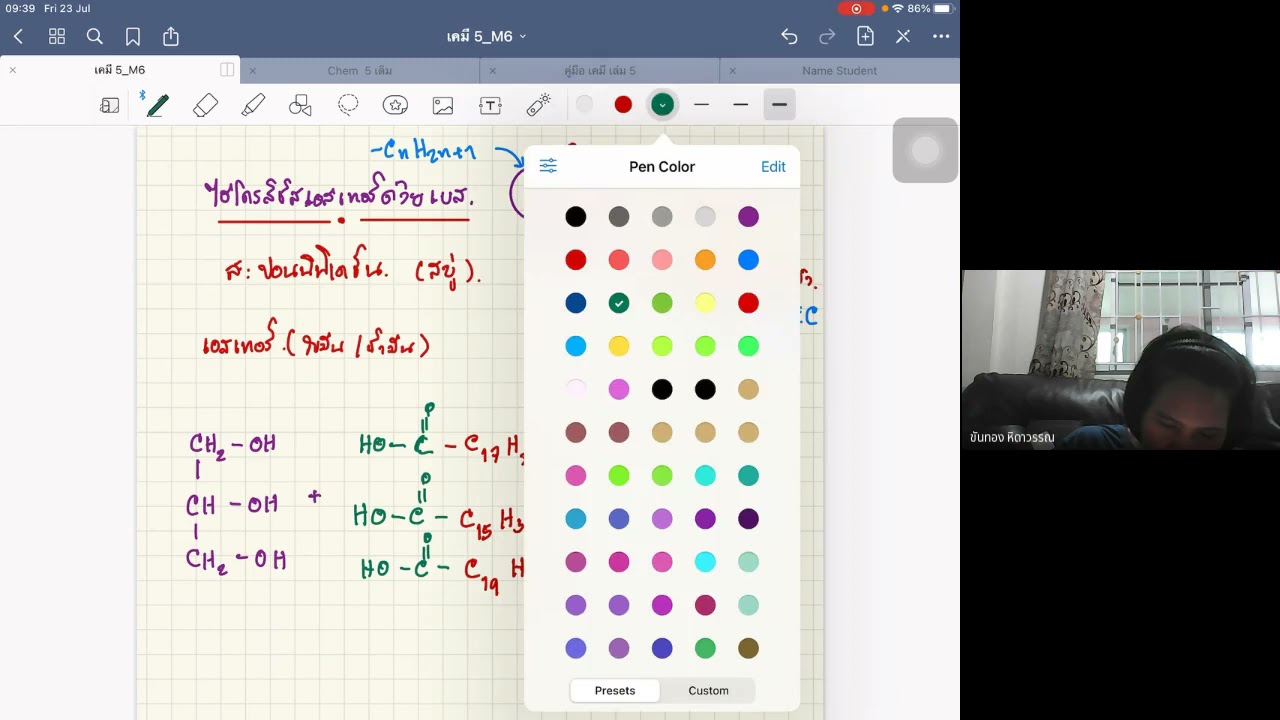 09:39 Fri 23 Jul 86%
เคมี 5_M6
เคมี 5_M6 Chem 5 เติม คู่มือ เคมี เล่ม 5 Name Student
-CnH2n+1
ไฮโดรลิซิสเอสเทอร์ด้วยเบส.
สะปอนนิฟิเคชัน. (สบู่).
EC
เอสเทอร์.(ไขมัน/น้ำมัน)
O
CH2 - OH HO - C - C17 H
O
CH - OH + HO - C - C15 H3
O
CH2 - OH HO - C - C19 H
Pen Color Edit
Presets Custom
ขันทอง หิดาวรรณ